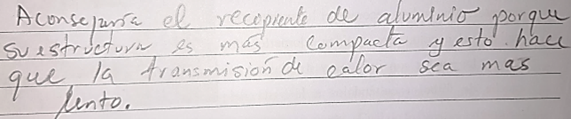 Aconsejaría el recopiente de aluminio porque
su estructura es más compacta y esto hace
que la transmisión de calor sea mas
lento.